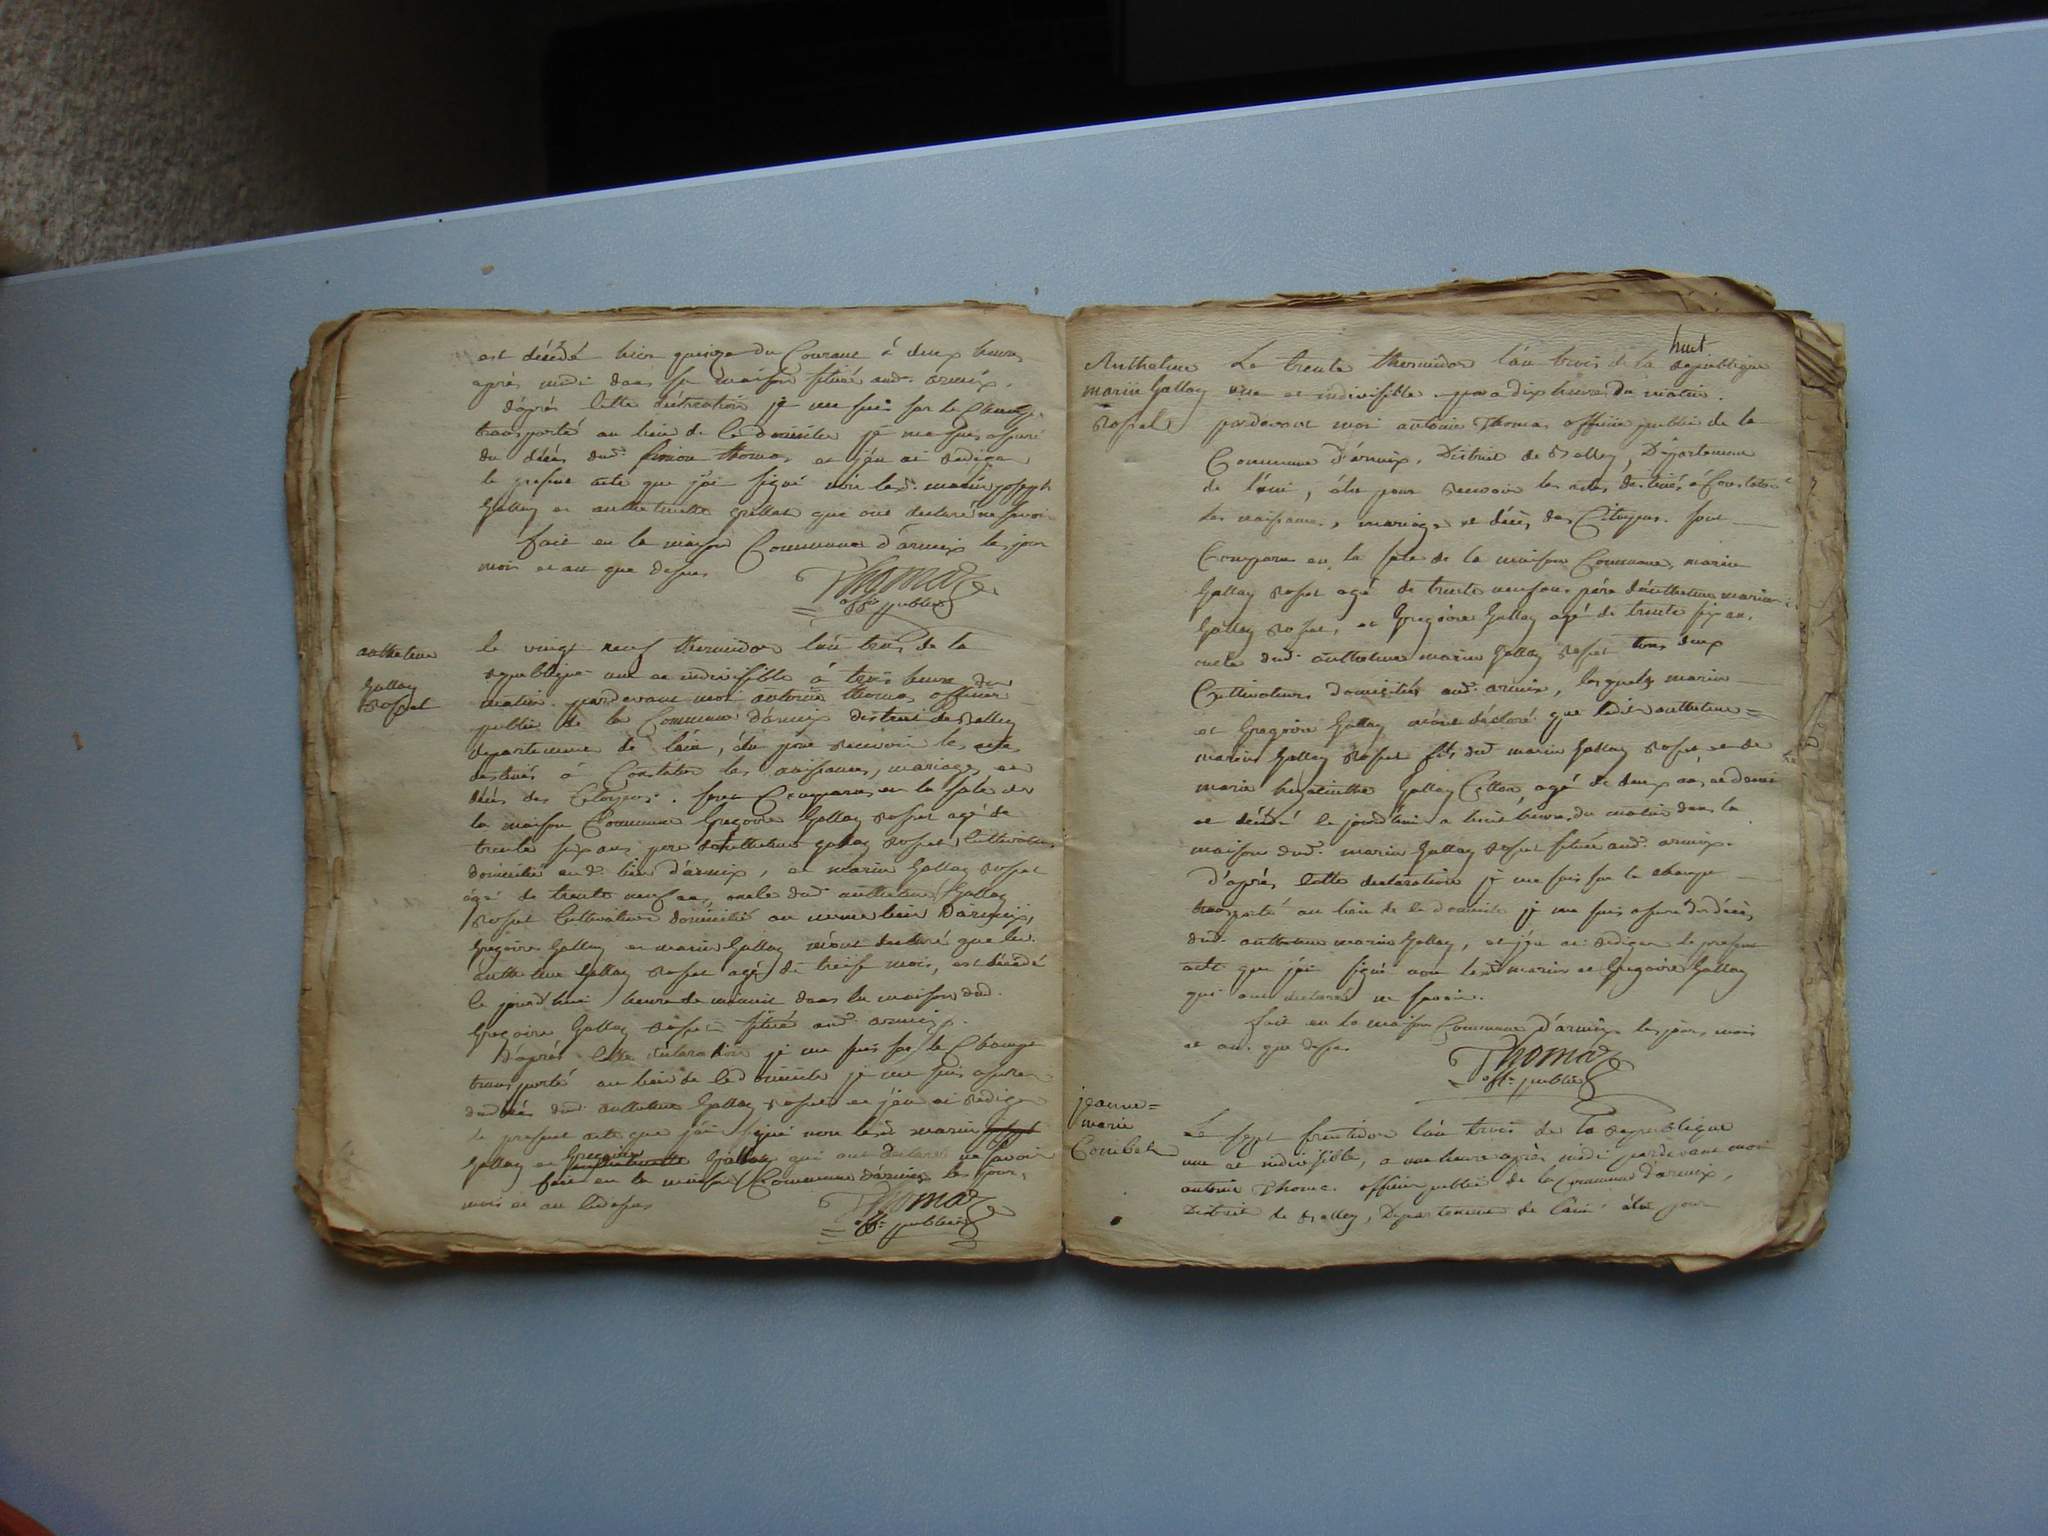 est décédé hier quinze du Courant à deux heures
après midi dans sa maison située aud. armix.
d'après cette déclaration je me suis sur le Champ
transporté au lieu de ce domicile je me suis assuré
du décès dud. Simon thomas et j'en ai rédigé
le present acte que j'ai signé non lesd. marin joseph
Gallay et anthelmette Gallas qui ont declaré ne savoir
fait en la maison Commune d'armix les jour
mois et an que dessus
Thomas
offr. public
anthelme
Gallay
Rosset
le vingt neuf thermidor l'an trois de la
republique une et indivisible à trois heure du
matin. pardevant moi antoine thomas officier
public de la Commune d'armix district de Belley
departement de l'ain, élu pour recevoir les actes
destinés à Constater les naissances, mariages et
décès des Citoyens. sont Comparus en la sale de
la maison Commune Gregoire Gallay Rosset agé de
trente six ans pere danthelme gallay Rosset Cultivateur
domicilié aud. lieu d'armix, et marin Gallay Rosset
agé de trente neuf ans, oncle dud. anthelme Gallay
Rosset Cultivateur domicilié au meme lieu D'armix,
Grégoire Gallay et marin Gallay m'ont declaré que led.
anthelme Gallay Rosset agé de treise mois, est décédé
le jourd'hui heure de minuit dans la maison dud.
Gregoire Gallay Rosset située aud. armix.
D'après cette déclaration je me suis sur le Champ
transporté au lieu de ce domicile je me suis assuré
du décès dud. anthelme Gallay Rosset et j'en ai rédigé
le present acte que j'ai signé non lesd. marin joseph
Gallay et Gregoire anthelmette Gallay qui ont declaré ne savoir
fait en la maison Commune d'armix les jour,
mois et an ci dessus
Thomas
offr. public
huit
Anthelme
marin Gallay
Rosset
Le trente thermidor l'an trois de la republique
une et indivisible a dix heures du matin.
pardevant moi antoine Thomas officier public de la
Commune d'armix, District de Belley, Département
de l'ain, élu pour recevoir les actes destinés à Constater
les naissances, mariages et décès des Citoyens. sont
Comparus en la sale de la maison Commune, marin
Gallay Rosset agé de trente neuf ans père d'anthelme marin
Gallay Rosset, et Gregoire Gallay agé de trente six ans,
oncle dud. anthelme marin Gallay Rosset tous deux
Cultivateurs domiciliés aud. armix, lesquels marin
et Gregoire Gallay m'ont déclaré que ledit anthelme
marin Gallay Rosset fils dud. marin Gallay Rosset et de
marie hyacinthe Gallay agé de deux ans et demi
est décédé le jourd'hui a huit heures du matin dans la
maison dud. marin Gallay Rosset située aud. armix.
D'après cette declaration je me suis sur le champ
transporté au lieu de ce domicile je me suis assuré du décès,
dud. anthelme marin Gallay, et j'en ai rédigé le present
acte que j'ai signé non lesd. marin et Gregoire Gallay
qui ont declaré ne savoir.
fait en la maison Commune d'armix les jour, mois
et an. que dessus
Thomas
offr. public
jeanne=
marie
Combet
Le sept fructidor l'an trois de la Republique
une et indivisible, a une heure après midi pardevant moi
antoine Thomas officier public de la Commune d'armix,
District de Belley, Departement de l'ain élu pour